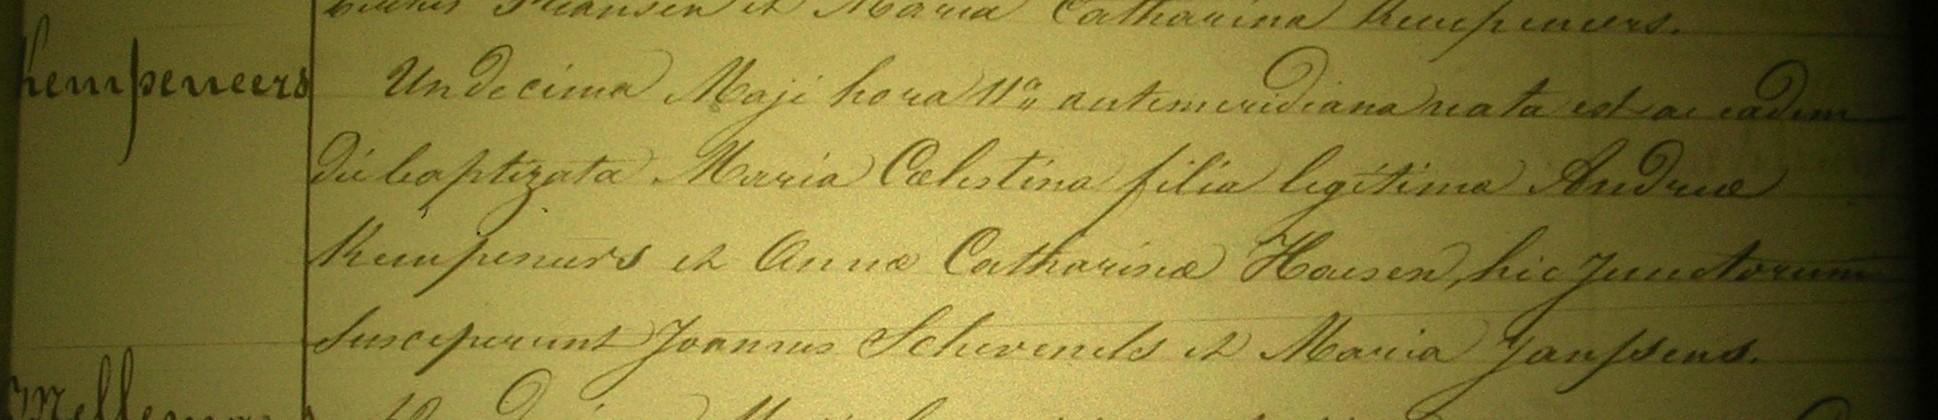 et Maria Catharina Kempeneers.
Kempeneers
Undecima Maji hora 11a antemeridiana nata est ac eadem
die baptizata Maria Cælestina filia legitima Andreæ
Kempeneers et Annæ Catharinæ Haesen, hic junctorum
Susceperunt Joannes Schevenels et Maria Janssens.